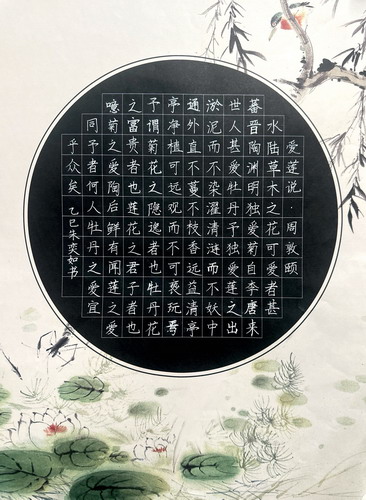 爱莲说·周敦颐
水陆草木之花可爱者甚
蕃晋陶渊明独爱菊自李唐来
世人甚爱牡丹予独爱莲之出
淤泥而不染濯清涟而不妖中
通外直不蔓不枝香远益清亭
亭净植可远观而不可亵玩焉
予谓菊花之隐逸者也牡丹花
之富贵者也莲花之君子者也
噫菊之爱陶后鲜有闻莲之爱
同予者何人牡丹之爱宜
乎众矣 乙巳朱奕如书